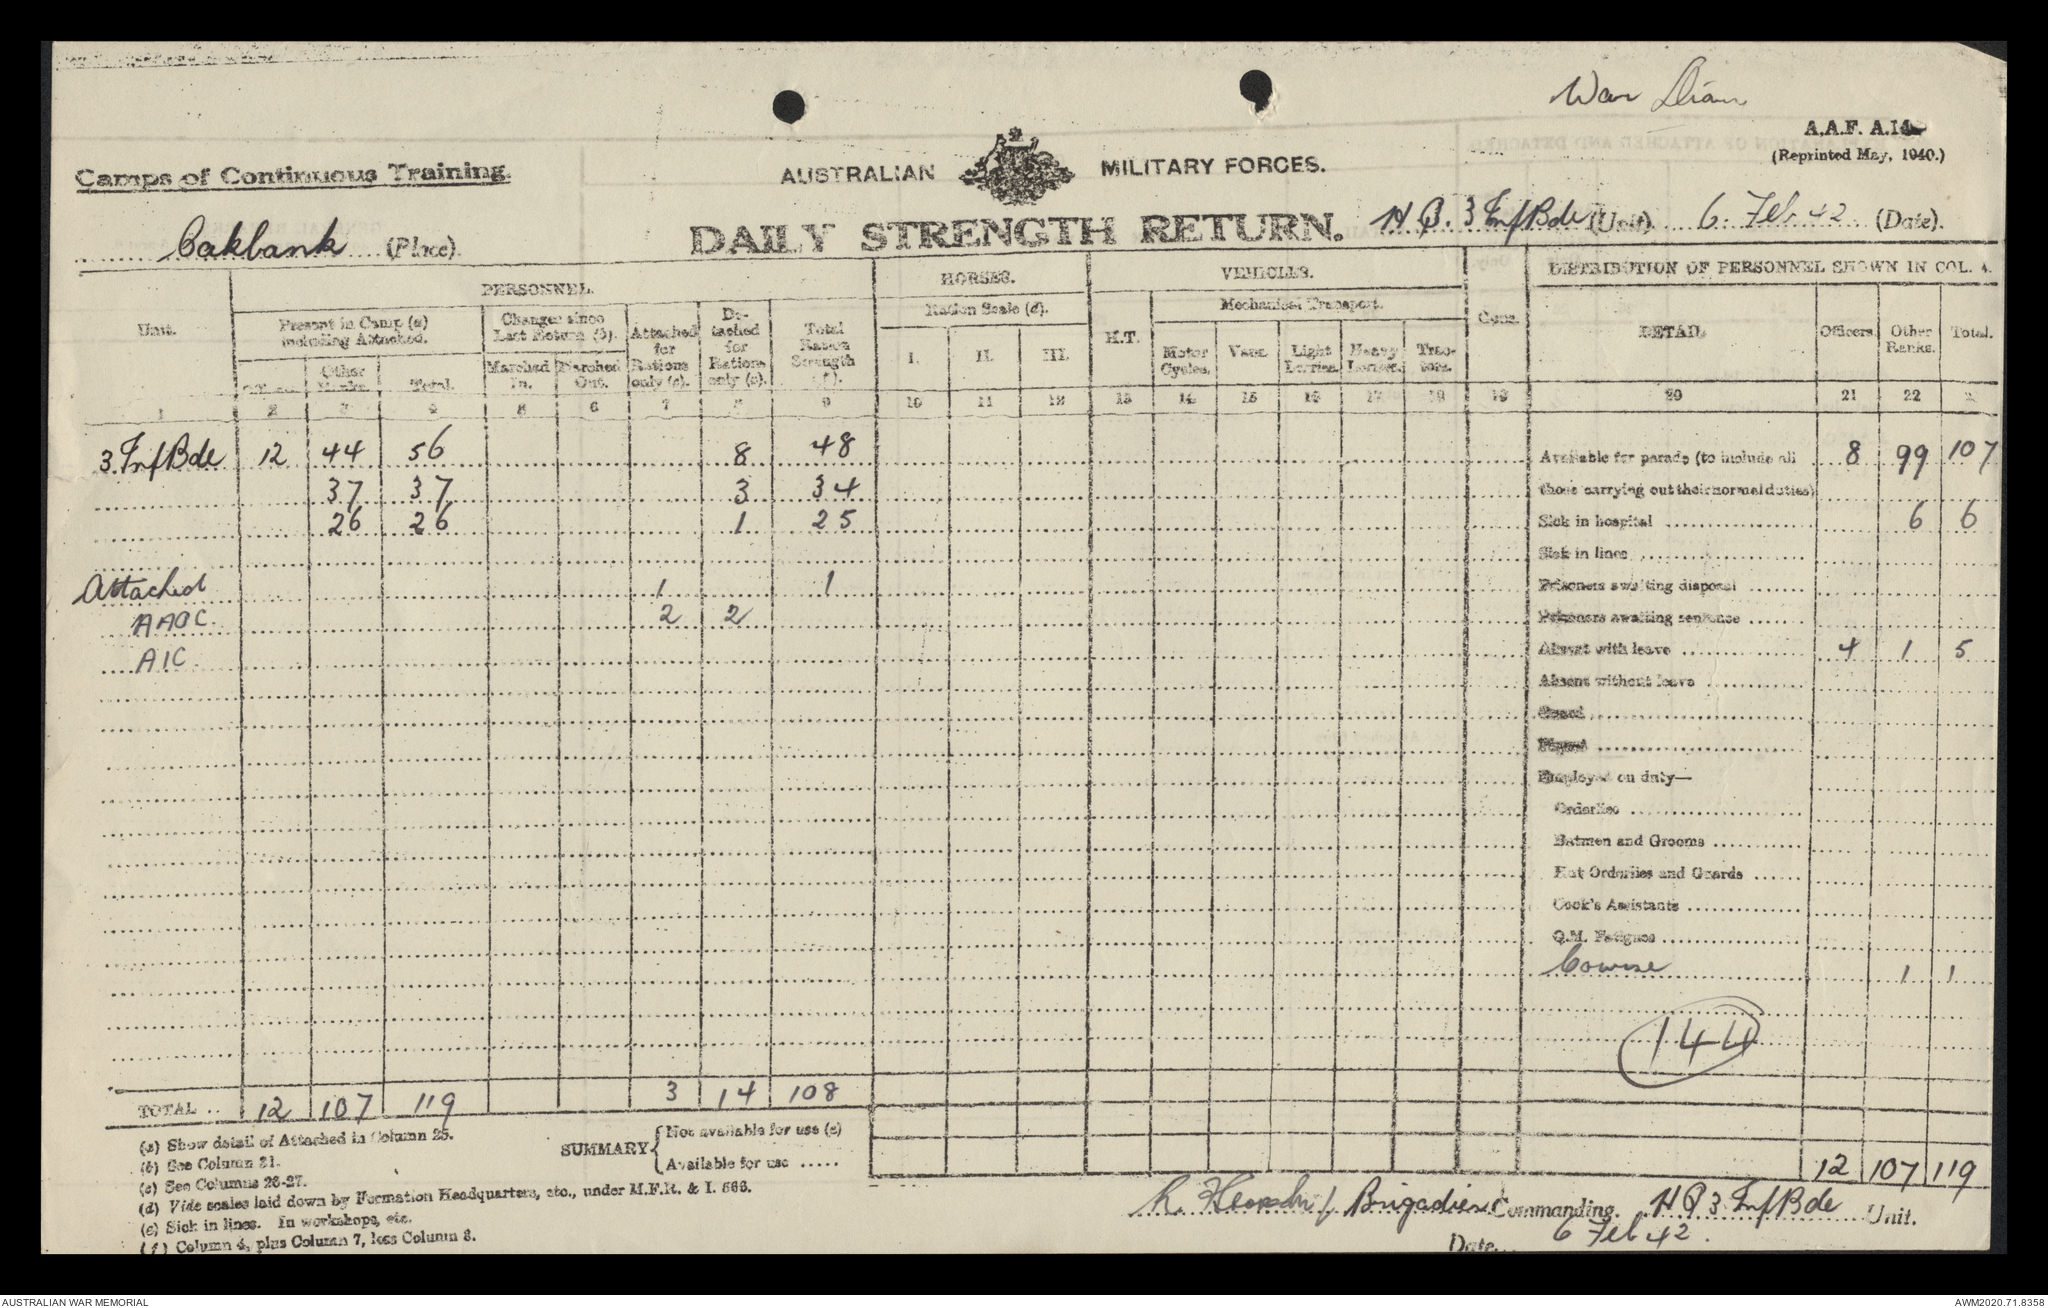 War Diary
A.A.F. A.14
(Reprinted May, 1940.)
Camps of Continuous Training.
AUSTRALIAN MILITARY FORCES.
Oakbank (Place).
DAILY STRENGTH RETURN.
H.Q. 3 Inf Bde (Unit). 6. Feb. 42 (Date).
PERSONNEL. HORSES. VEHICLES. DISTRIBUTION OF PERSONNEL SHOWN IN COL. 4.
Unit. Present in Camp (a) including Attached. Changes since Last Return (b). Attached for Rations only (c). Detached for Rations only (c). Total Ration Strength (f). Ration Scale (d). H.T. Mechanical Transport. DETAIL Officers. Other Ranks. Total.
Other Ranks. Total. Marched In. Marched Out. I. II. III. Motor Cycles. Vans. Light Lorries. Heavy Lorries. Tractors.
1 2 3 4 5 6 7 8 9 10 11 12 13 14 15 16 17 18 19 20 21 22
3 Inf Bde 12 44 56 8 48 Available for parade (to include all 8 99 107
37 37 3 34 those carrying out their normal duties)
26 26 1 25 Sick in hospital 6 6
Sick in lines
Attached 1 1 Prisoners awaiting disposal
AAOC 2 2 Prisoners awaiting sentence
AIC Absent with leave 4 1 5
Absent without leave
Employed on duty—
Orderlies
Batmen and Grooms
Hut Orderlies and Guards
Cook's Assistants
Q.M. Fatigues
Course 1 1
144
TOTAL 12 107 119 3 14 108
(a) Show detail of Attached in Column 25.
(b) See Column 31.
(c) See Columns 26-27.
(d) Vide scales laid down by Formation Headquarters, etc., under M.F.R. & I. 566.
(e) Sick in lines. In workshops, etc.
(f) Column 4, plus Column 7, less Column 8.
SUMMARY { Not available for use (e)
Available for use
12 107 119
Brigadier Commanding. HQ 3 Inf Bde Unit.
Date 6 Feb 42.
AUSTRALIAN WAR MEMORIAL
AWM2020.71.8358